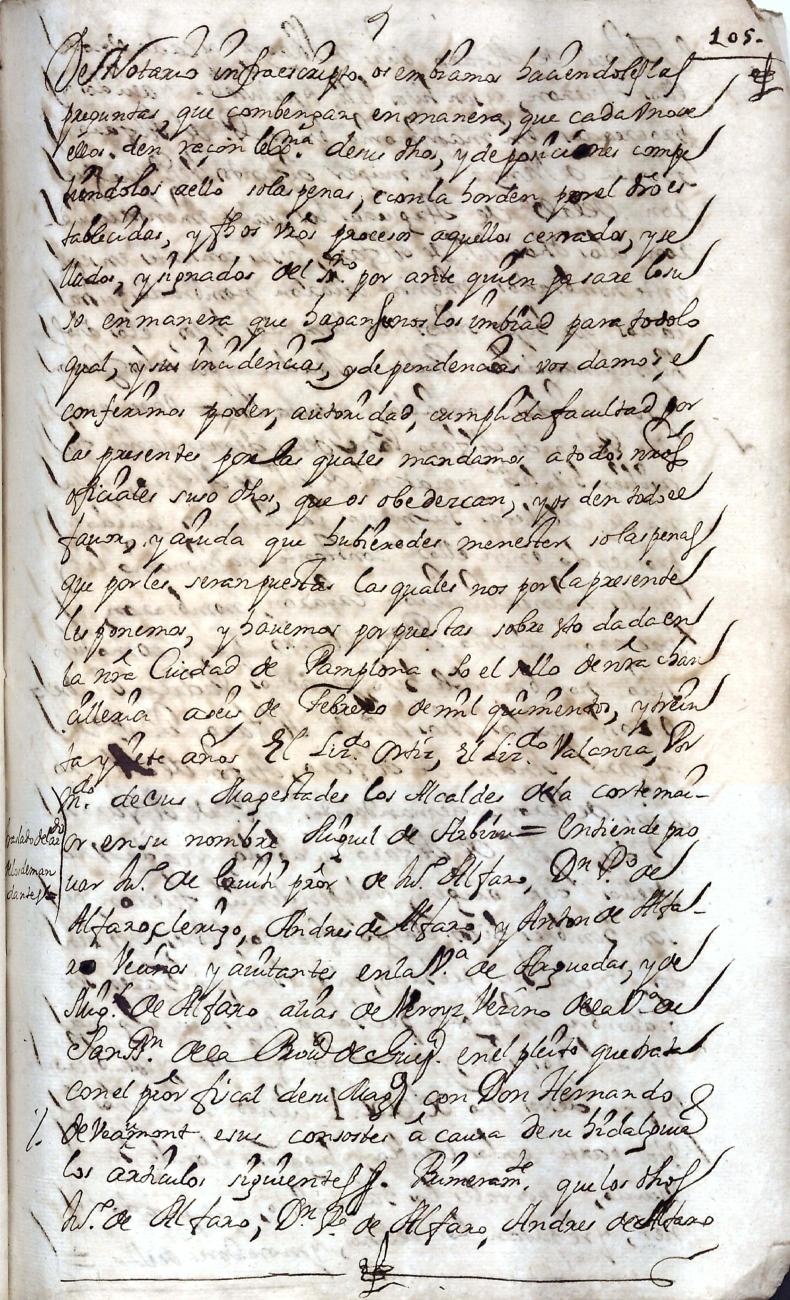 105.
Del Notario infraescripto os embiamos haciendoles las
preguntas, que combengan, en manera, que cada uno de
ellos den raçon de sus dhos, y deposiciones compe
liendolos a ello solas penas, e con la horden por el dro es
tablecidas, y fhos vros procesos aquellos cerrados, y se
llados, y signados del por ante quien pasare lo su
so en manera que hagan fe nos los imbiad para todo lo
qual, y sus incidencias, y dependencias vos damos, e
conferimos poder, autoridad, cumplida facultad por
las presentes por las quales mandamos a todos nros
oficiales suso dhos, que os obedezcan, y os den todo el
favor, y aiuda que hubieredes menester so las penas
que por les seran puestas las quales nos por la presente
les ponemos, y havemos por puestas sobre esto dada en
la nra Ciudad de Pamplona so el sello de nra chan
cilleria a seis de Febrero de mil quinientos, y trein
ta y siete años El Liz.do Ortiz, El Liz.do Valanza, Por
m.do de sus Magestades los Alcaldes de la corte mai-
or en su nombre Miguel de Arbizu = Entiende pro
var de pror de Alfaro, Dn P.o de
Alfaro, clerigo, Andres de Alfaro, y Anton de Alfa-
ro Vecinos y avitantes en la V.a de Arguedas, y de
Mig.l de Alfaro alias de Veroyz Vezino de la V.a de
San de la Prov.a de en el pleito que trata
con el pror fiscal de su Mag.d con Don Hernando
de Veamont e sus consortes à causa de su hidalguia
los articulos siguientes Primeram.te que los dhos
de Alfaro, Dn P.o de Alfaro, Andres de Alfaro
traslado de
de los deman
dantes